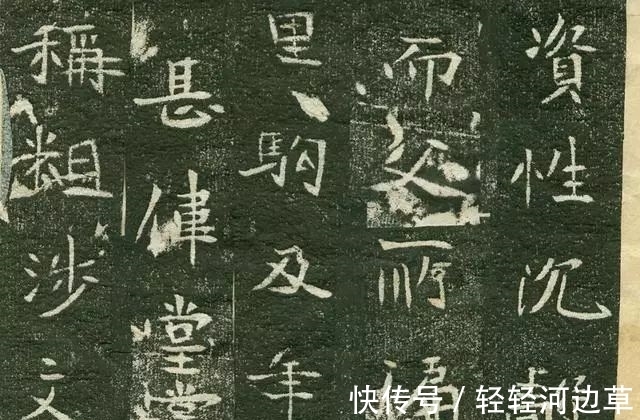 資性沉
而所
里駒及年
甚偉堂堂
稱粗涉文
快传号/轻轻河边草